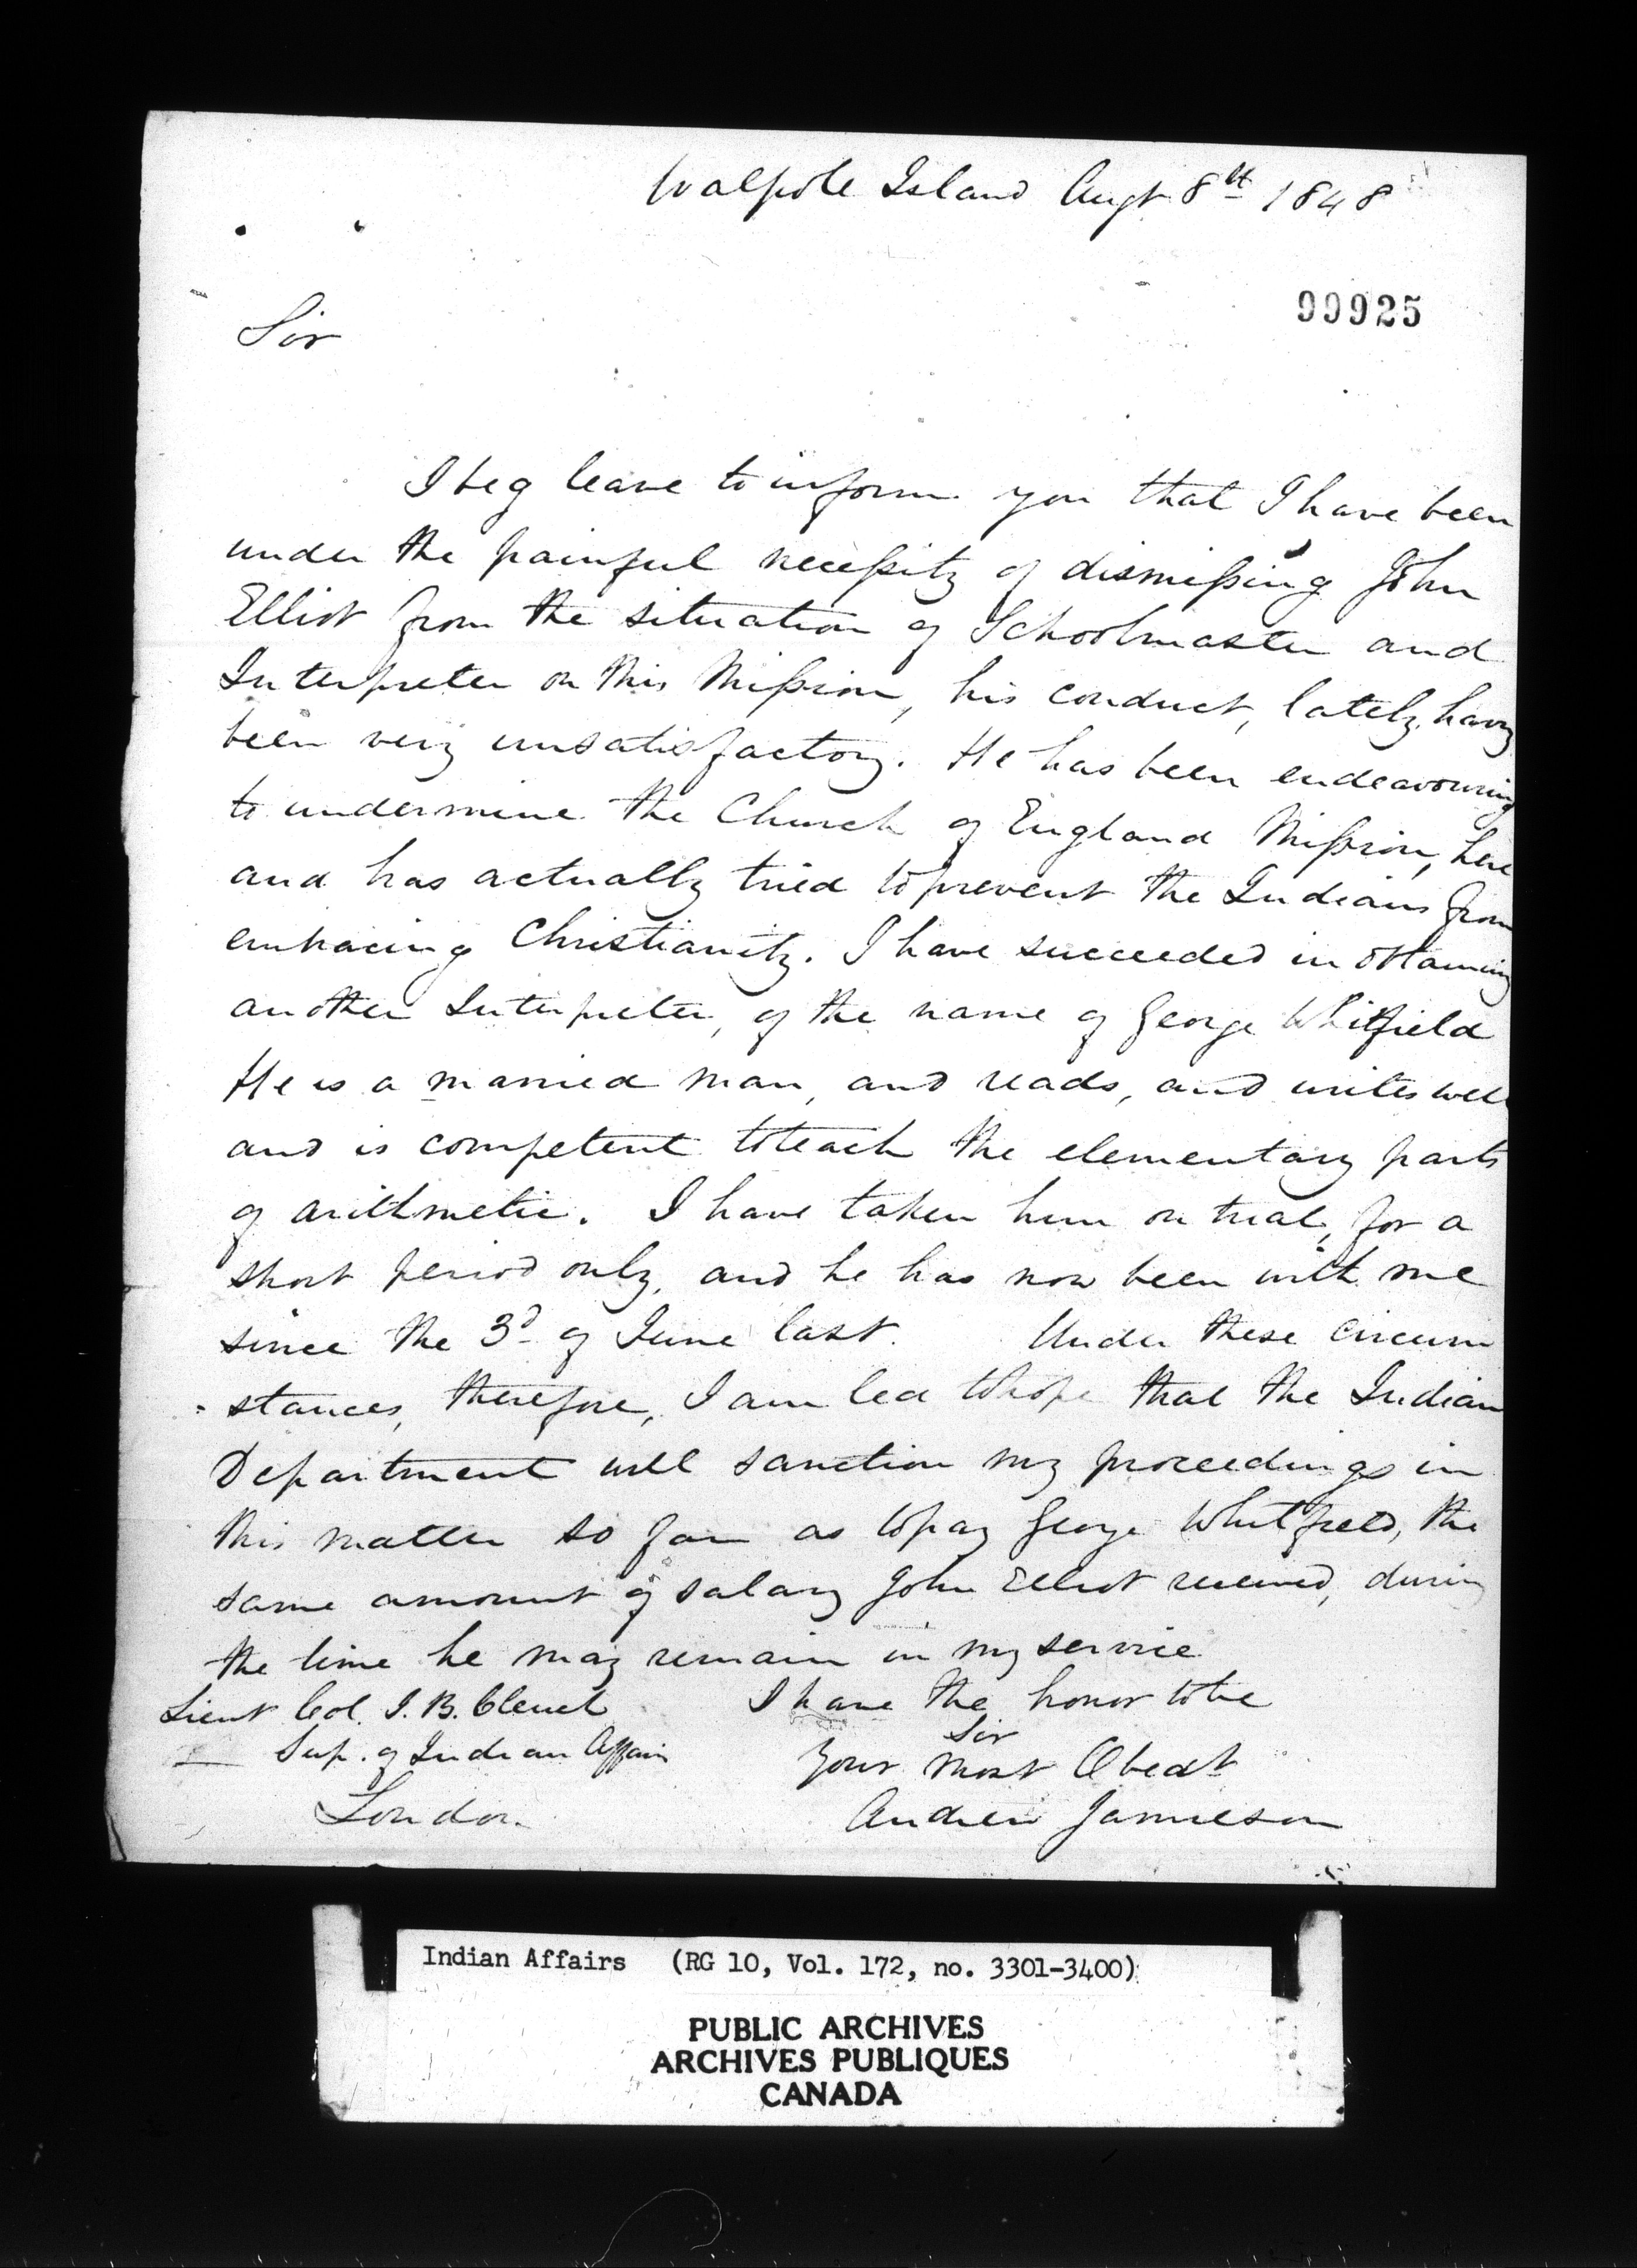 Walpole Island Augt 8th 1848
99925
Sir
I beg leave to inform you that I have been
under the painful necessity of dismissing John
Elliot from the situation of Schoolmaster and
Interpreter on this Mission, his conduct, lately, having
been very unsatisfactory. He has been endeavouring
to undermine the Church of England Mission, here
and has actually tried to prevent the Indians from
embracing Christianity. I have succeeded in obtaining
another Interpreter, of the name of George Whitfield
He is a married man, and reads, and writes well
and is competent to teach the elementary parts
of arithmetic. I have taken him on trial, for a
short period only, and he has now been with me
since the 3d of June last. Under these circum
-stances, therefore, I am led to hope that the Indian
Department will sanction my proceedings in
this matter so far as to pay George Whitfield, the
same amount of salary John Elliot received, during
the time he may remain in my service
Lieut Col. J. B. Clench I have the honor to be
Sup. of Indian Affairs Sir
Your Most Obedt
London Andrew Jamieson
Indian Affairs (RG 10, Vol. 172, no. 3301-3400)
PUBLIC ARCHIVES
ARCHIVES PUBLIQUES
CANADA